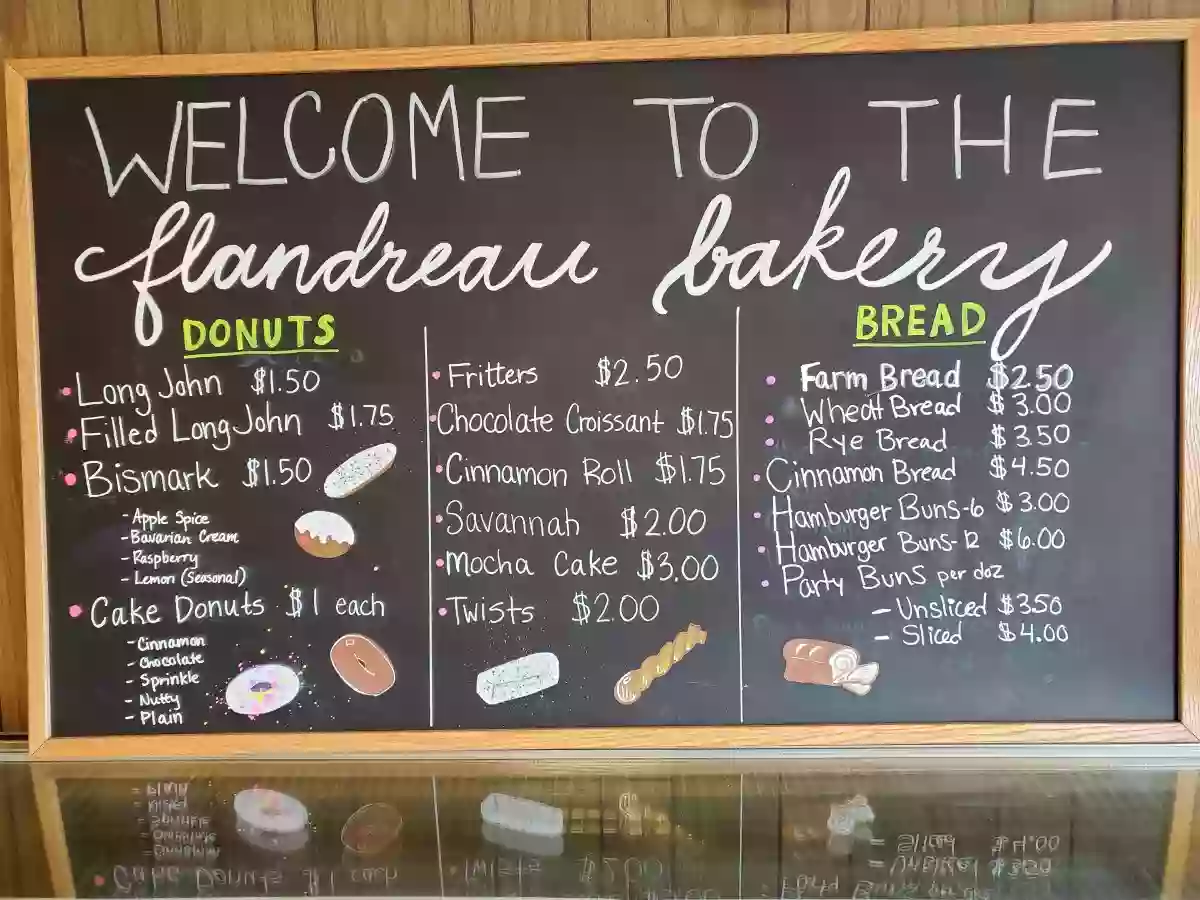 WELCOME TO THE
flandreau bakery
DONUTS
• Long John $1.50
• Filled Long John $1.75
• Bismark $1.50
- Apple Spice
- Bavarian Cream
- Raspberry
- Lemon (Seasonal)
• Cake Donuts $1 each
- Cinnamon
- Chocolate
- Sprinkle
- Nutty
- Plain
• Fritters $2.50
• Chocolate Croissant $1.75
• Cinnamon Roll $1.75
• Savannah $2.00
• Mocha Cake $3.00
• Twists $2.00
BREAD
• Farm Bread $2.50
• Wheat Bread $3.00
• Rye Bread $3.50
• Cinnamon Bread $4.50
• Hamburger Buns-6 $3.00
• Hamburger Buns-12 $6.00
• Party Buns per doz
- Unsliced $3.50
- Sliced $4.00